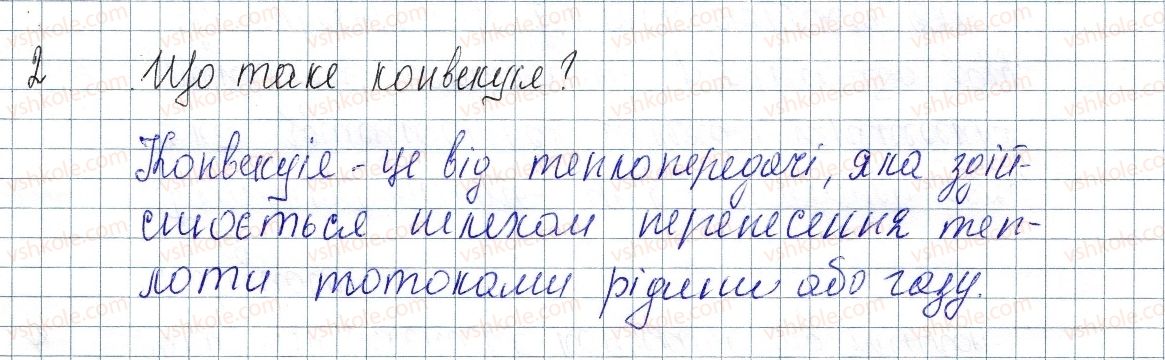 2 Що таке конвекція?
Конвекція - це від теплопередачі, яка здій-
снюється шляхом перенесення теп-
лоти потоками рідини або газу.